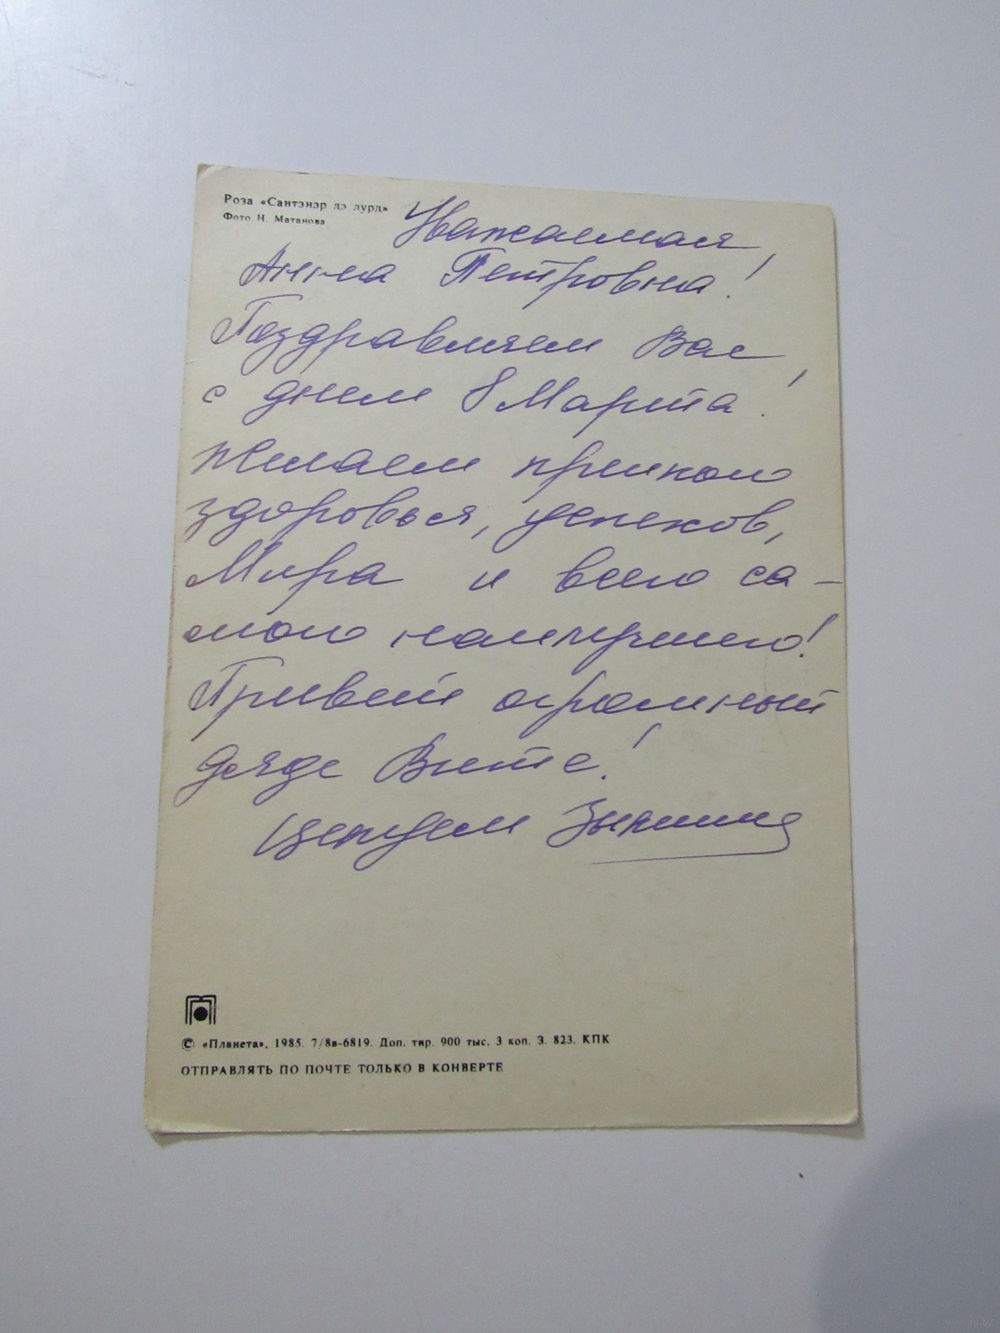 Роза «Сантэнэр дэ лурд»
Фото Н. Матанова
Уважаемая
Анна Петровна!
Поздравляем Вас
с днем 8 Марта!
желаем крепкого
здоровья, успехов,
Мира и всего са-
мого наилучшего!
Привет огромный
дяде Вите!
Целуем
© «Планета», 1985. 7/8в-6819. Доп. тир. 900 тыс. 3 коп. З. 823. КПК
ОТПРАВЛЯТЬ ПО ПОЧТЕ ТОЛЬКО В КОНВЕРТЕ